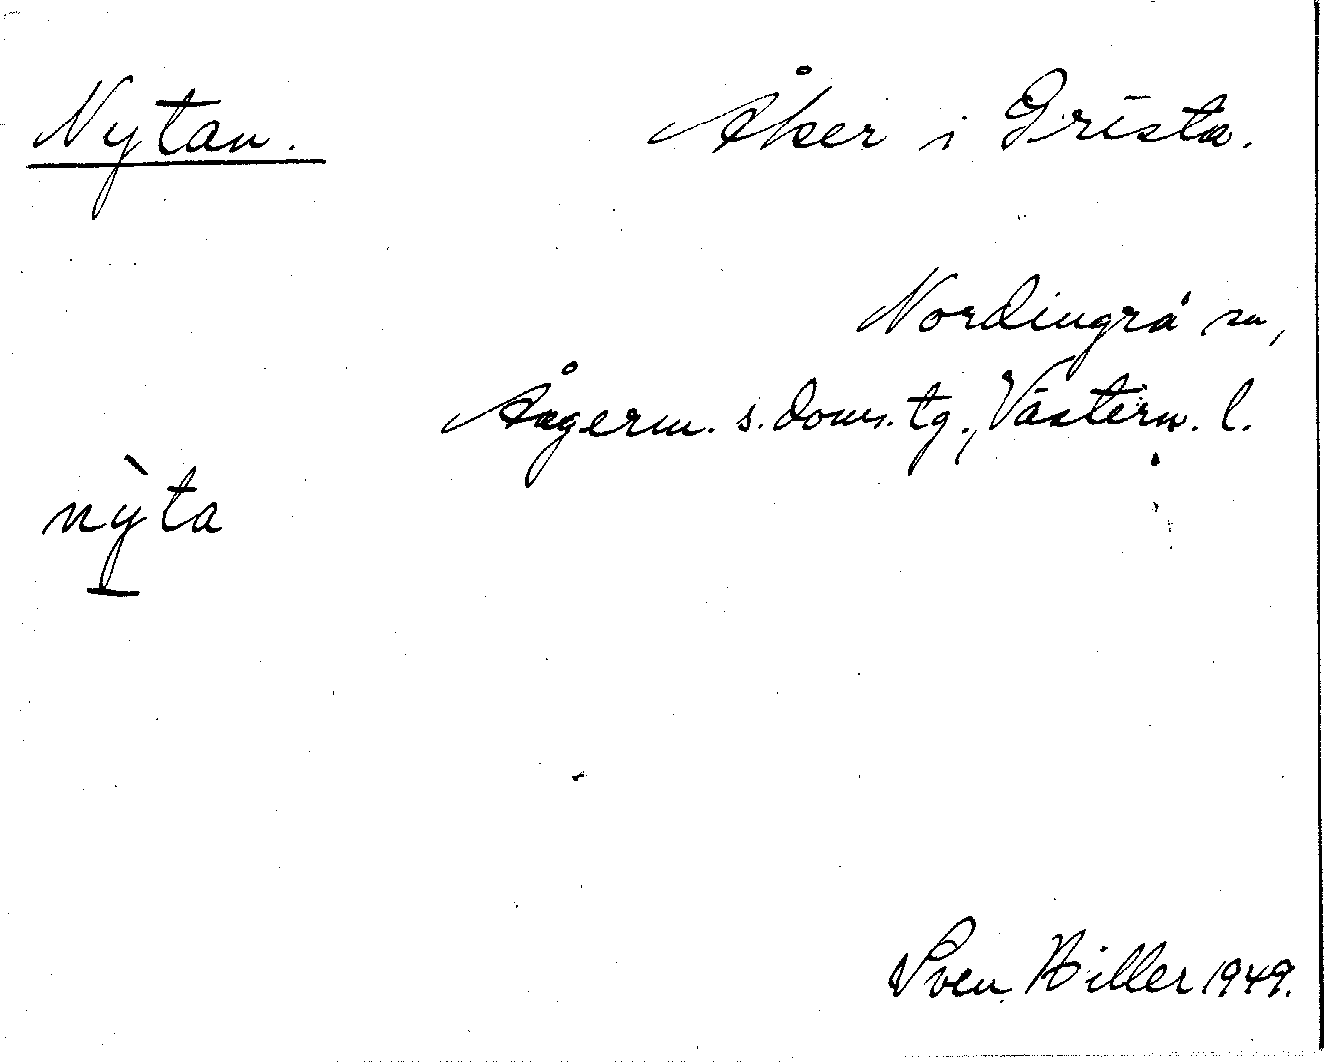 Nytan. Åker i Grista.
Nordingrå sn,
Ångerm. s. doms. tg., Västern. l.
nỳta
Sven Hiller 1949.